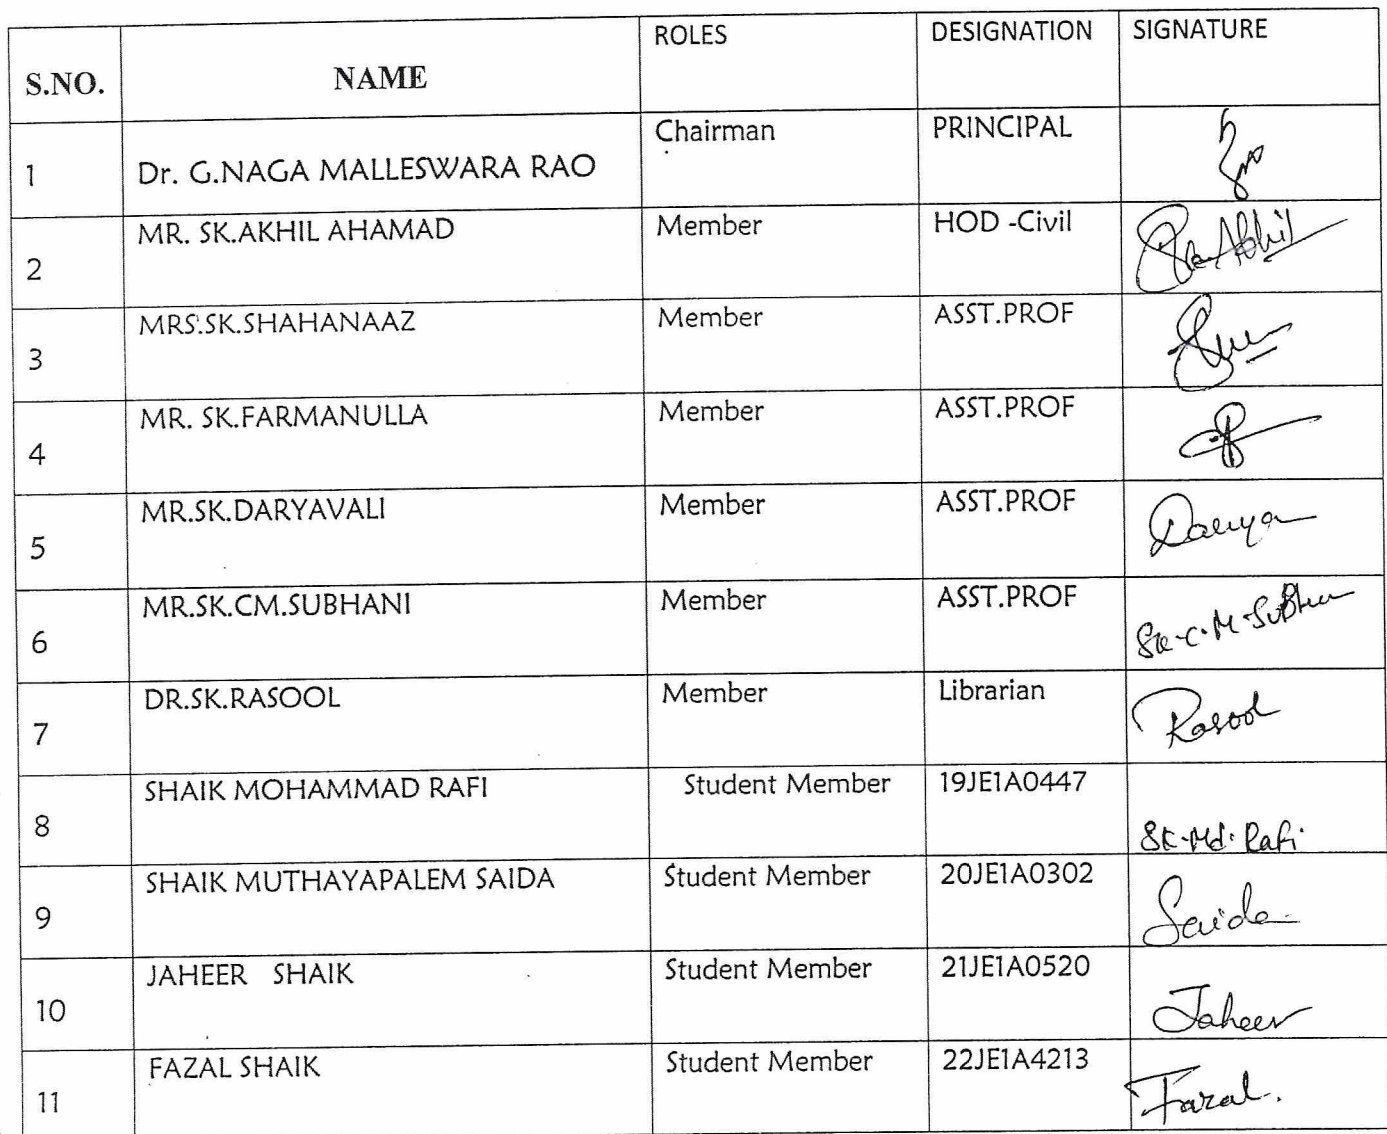 S.NO. NAME ROLES DESIGNATION SIGNATURE
1 Dr. G.NAGA MALLESWARA RAO Chairman PRINCIPAL
2 MR. SK.AKHIL AHAMAD Member HOD -Civil Sk. Akhil
3 MRS.SK.SHAHANAAZ Member ASST.PROF
4 MR. SK.FARMANULLA Member ASST.PROF
5 MR.SK.DARYAVALI Member ASST.PROF Darya
6 MR.SK.CM.SUBHANI Member ASST.PROF SK.C.M.Subhani
7 DR.SK.RASOOL Member Librarian Rasool
8 SHAIK MOHAMMAD RAFI Student Member 19JE1A0447 SK.Md.Rafi
9 SHAIK MUTHAYAPALEM SAIDA Student Member 20JE1A0302 Saida
10 JAHEER SHAIK Student Member 21JE1A0520 Jaheer
11 FAZAL SHAIK Student Member 22JE1A4213 Fazal.